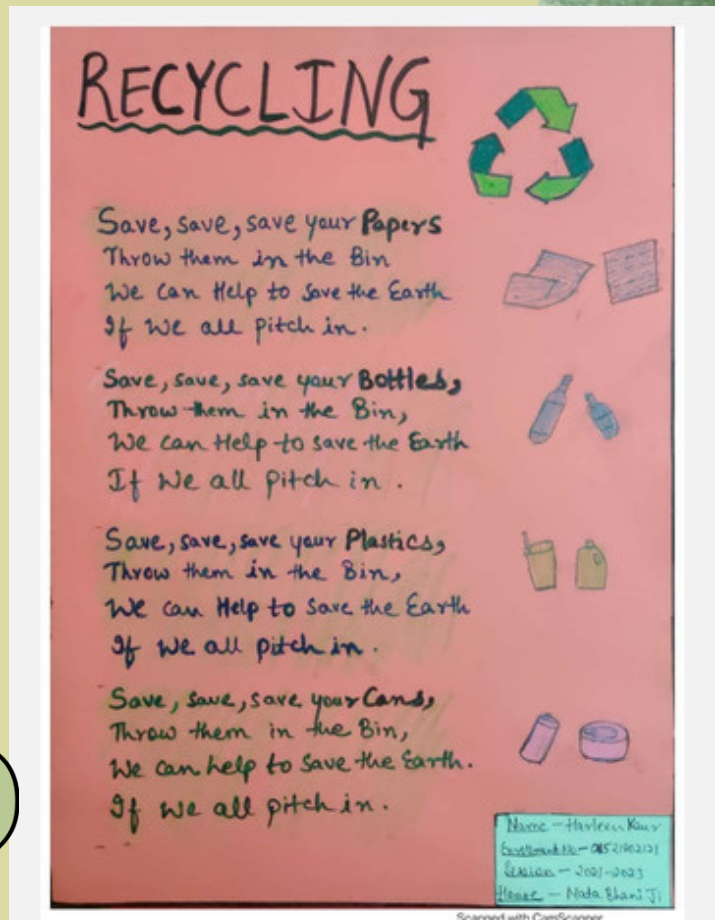 RECYCLING
Save, save, save your Papers
Throw them in the Bin
We can Help to save the Earth
If we all pitch in.
Save, save, save your Bottles,
Throw them in the Bin,
We can Help to save the Earth
If we all pitch in.
Save, save, save your Plastics,
Throw them in the Bin,
We can Help to save the Earth
If we all pitch in.
Save, save, save your Cans,
Throw them in the Bin,
We can help to save the Earth.
If we all pitch in.
Name - Harleen Kaur
Enrollment No -
Session - 2021-2023
House - Mata Bhani Ji
Scanned with CamScanner